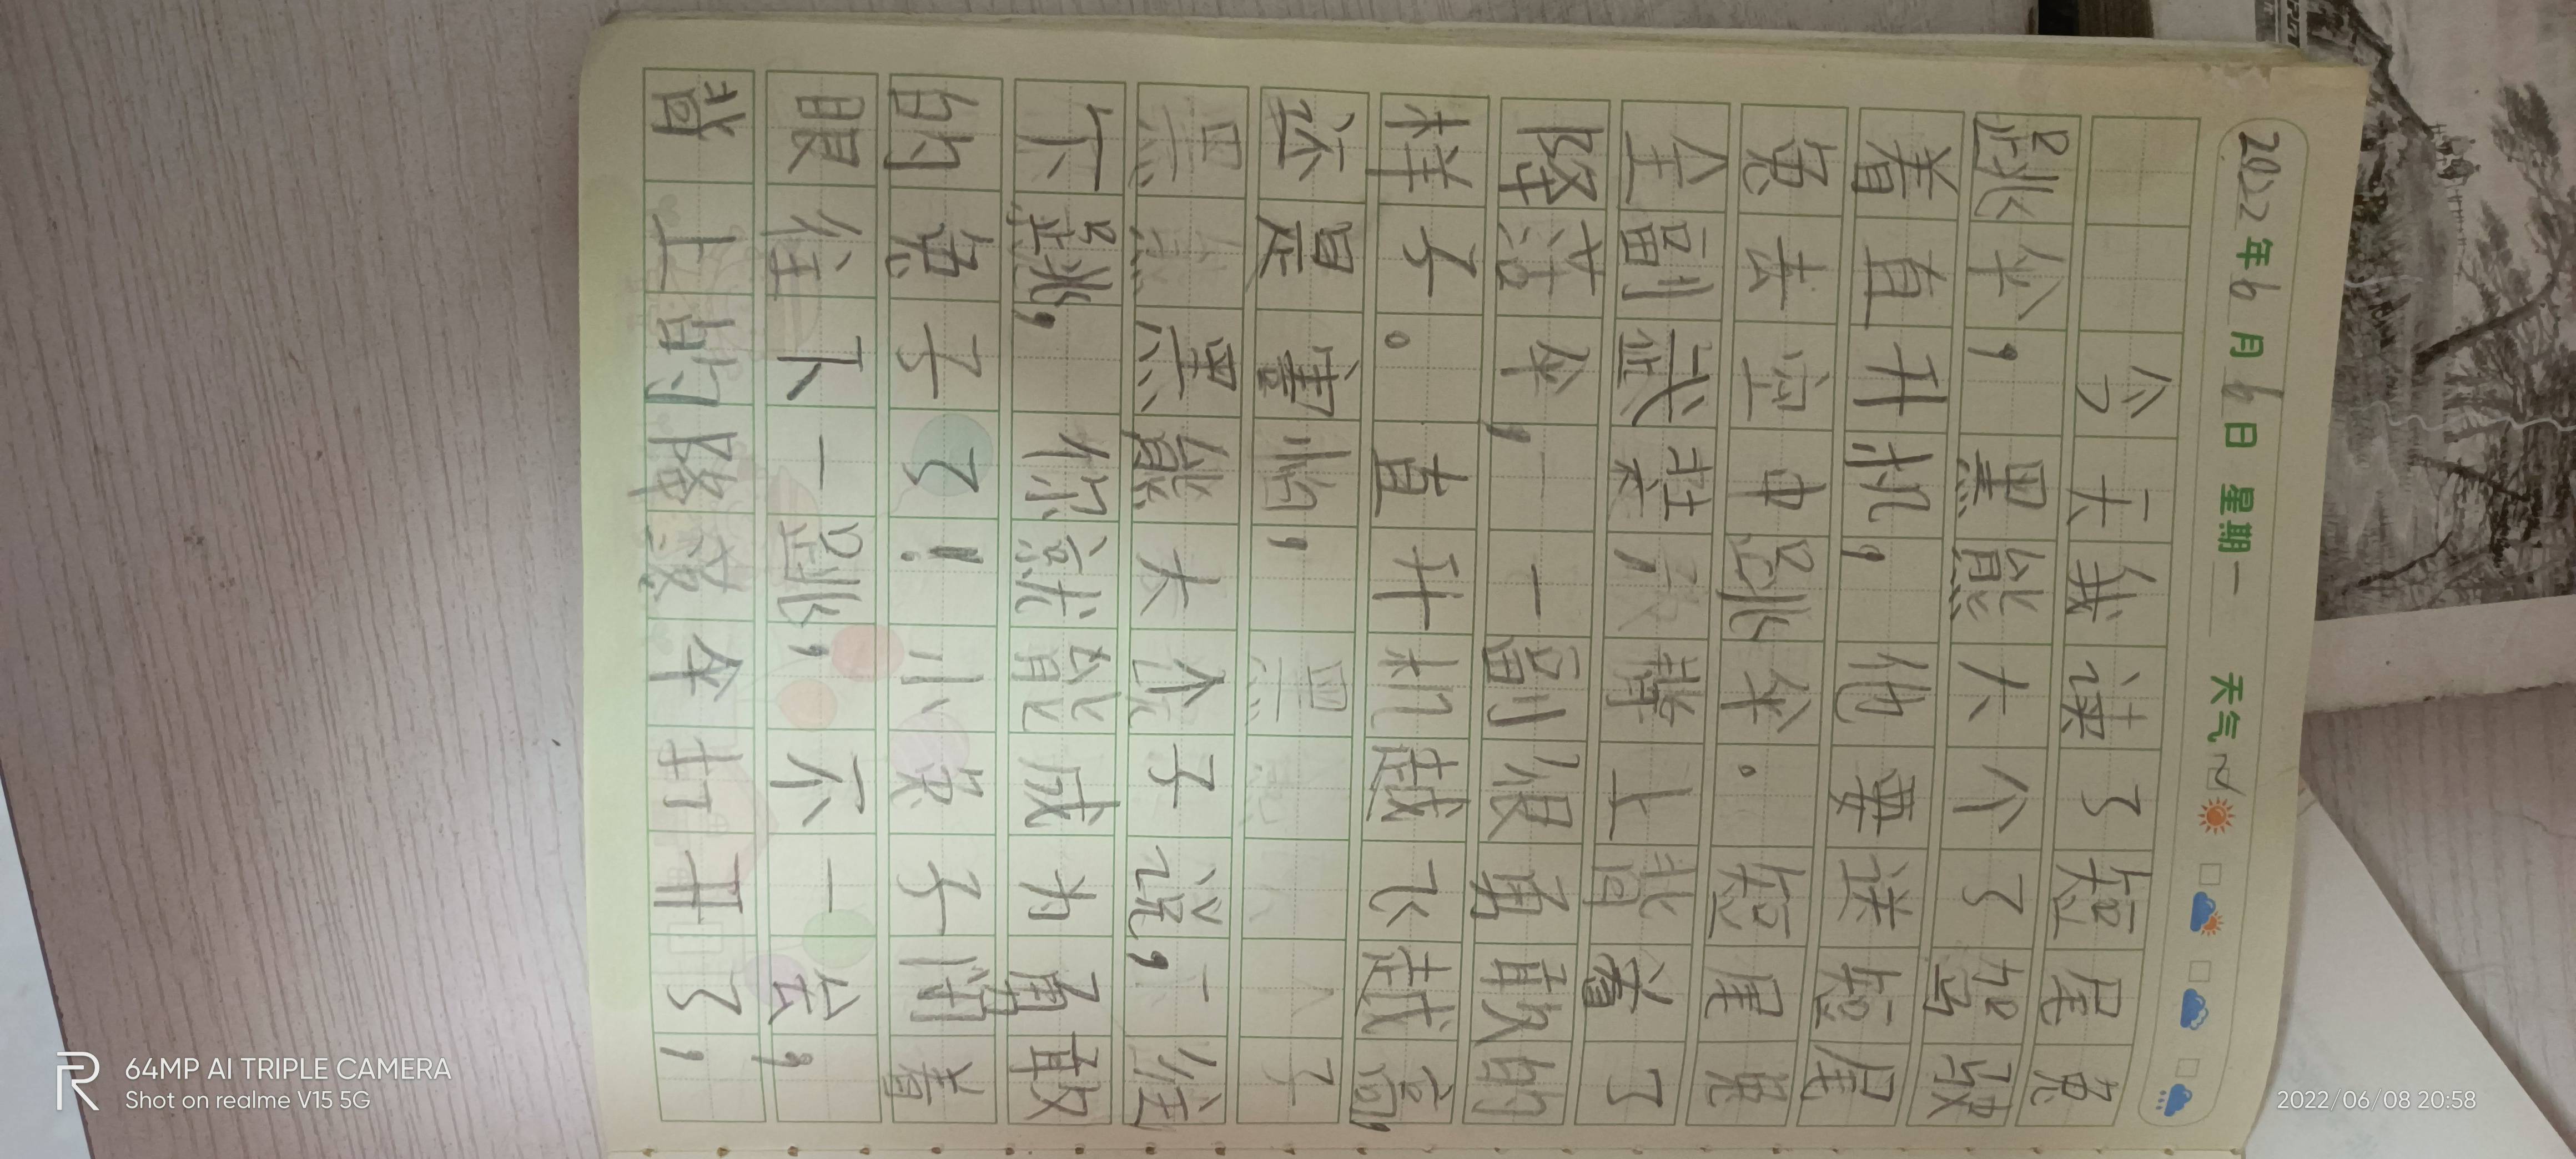 2022年6月6日 星期一 天气
今天我读了短尾兔
跳伞,黑熊大个了驾驶
着直升机,他要送短尾
兔去空中跳伞。短尾兔
全副武装 上背着了
降落伞,一一副很勇敢的
样子。直升机越飞越高,
还是害怕,
黑熊大个子说,一往
下跳,你就能成为勇敢
的兔子了!小兔子闭着
眼往下一跳,不一会,
背上的降落伞打开了,
64MP AI TRIPLE CAMERA
Shot on realme V15 5G
2022/06/08 20:58